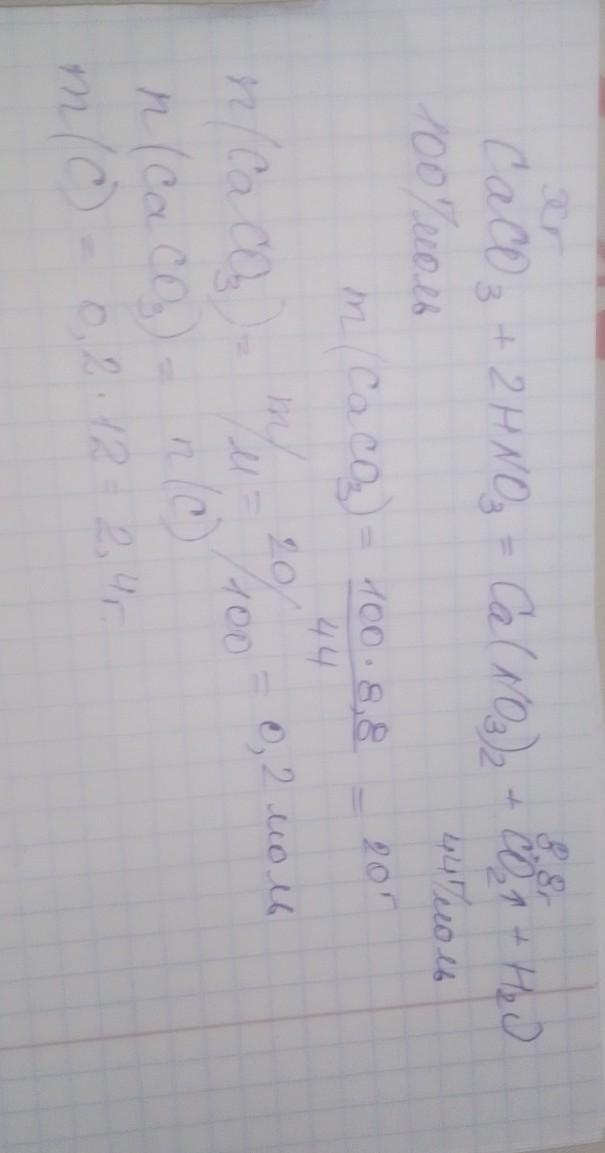 xг 8,8г
CaCO₃ + 2HNO₃ = Ca(NO₃)₂ + CO₂↑ + H₂O
100г/моль 44г/моль
m(CaCO₃) = 100·8,8/44 = 20г
n(CaCO₃) = m/M = 20/100 = 0,2 моль
n(CaCO₃) = n(C)
m(C) = 0,2·12 = 2,4г.